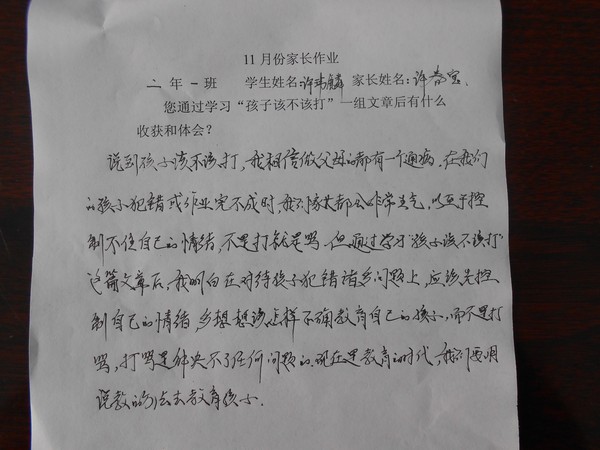 11月份家长作业
二年一班 学生姓名:许玮麟 家长姓名:许春宝
您通过学习“孩子该不该打”一组文章后有什么
收获和体会?
说到孩子该不该打,我相信做父母的都有一个通病,在我们
的孩子犯错或作业完不成时,我们家长都会非常生气,以至于控
制不住自己的情结,不是打就是骂.但通过学习“孩子该不该打”
这篇文章后,我明白在对待孩子犯错诸多问题上,应该先控
制自己的情绪,多想想该怎样正确教育自己的孩子,而不是打
骂,打骂是解决不了任何问题的.现在是教育的时代,我们要用
说教的方法去教育孩子.